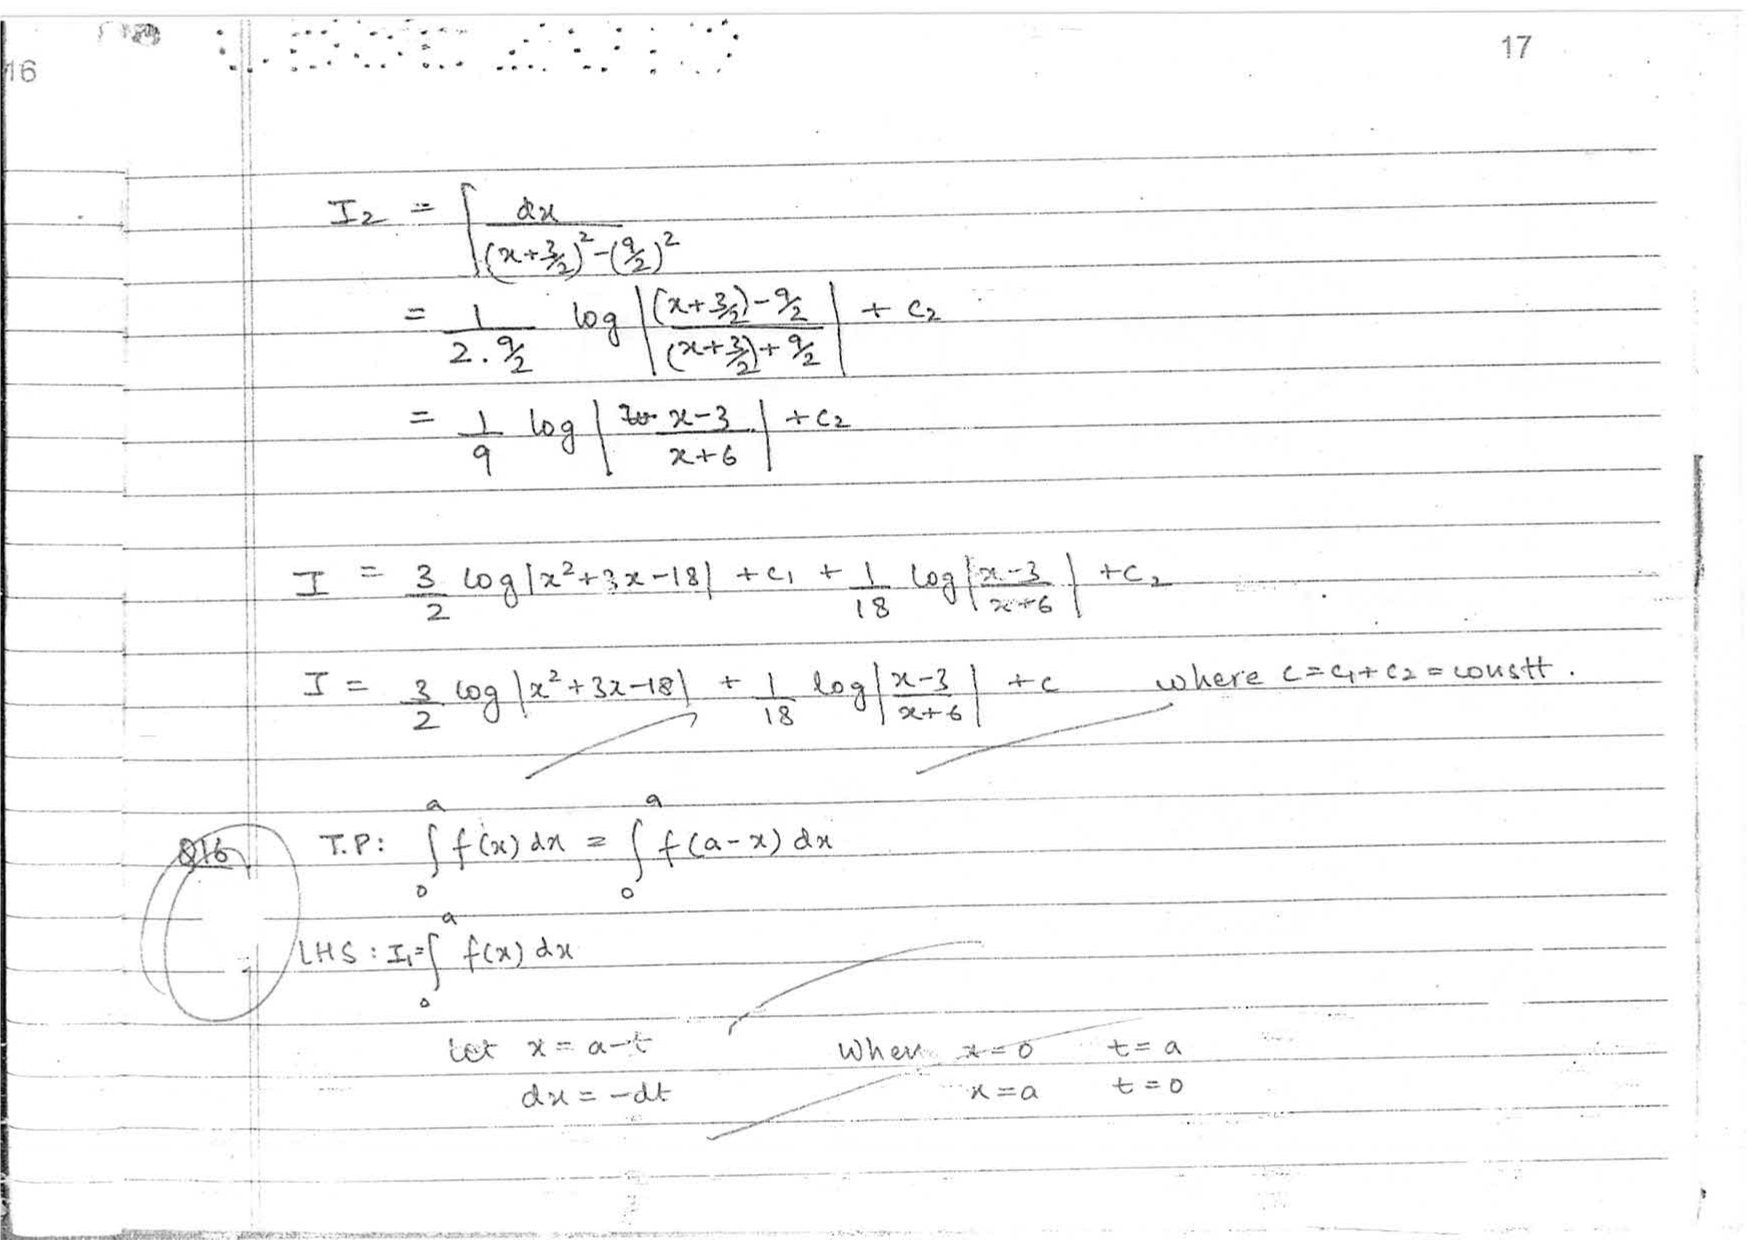 16
17
I₂ = ∫ dx / ((x+3/2)² - (9/2)²)
= 1/(2·9/2) log |((x+3/2) - 9/2) / ((x+3/2) + 9/2)| + c₂
= 1/9 log |(x-3)/(x+6)| + c₂
I = 3/2 log |x²+3x-18| + c₁ + 1/18 log |(x-3)/(x+6)| + c₂
I = 3/2 log |x²+3x-18| + 1/18 log |(x-3)/(x+6)| + c where c = c₁ + c₂ = constt.
Q16 T.P: ∫₀ᵃ f(x) dx = ∫₀ᵃ f(a-x) dx
LHS : I₁ = ∫₀ᵃ f(x) dx
Let x = a-t When x=0 t=a
dx = -dt x=a t=0